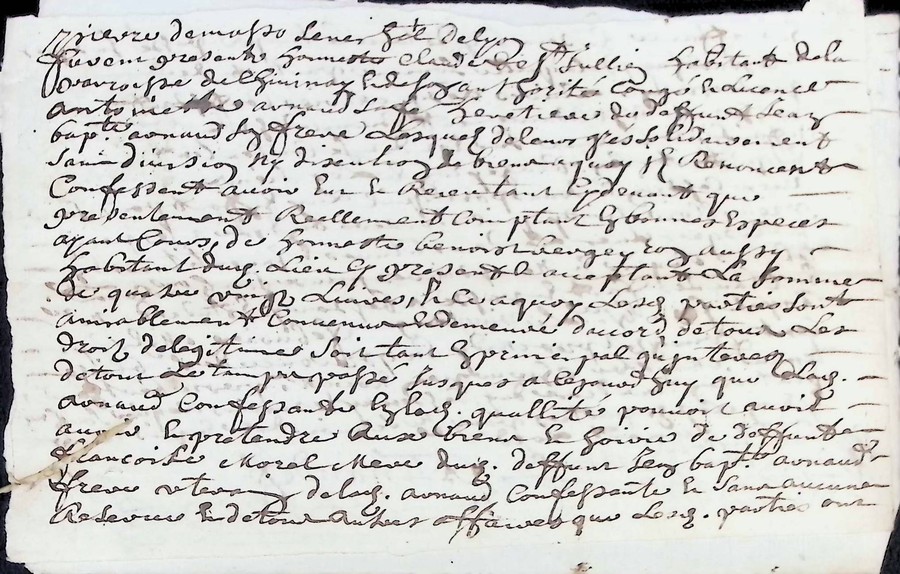 pierre demasso senechal delyon
furent presents honneste Claude St Jullien habitant de la
parroisse de Thurins Et de soy authorité Congé et Licence
antoinette arnaud sa fe heretiere du deffunt Jean
bapte arnaud son frere Lesquels de leurs gres Solidairement
Sans division ny discution de biens a quoy ils Renoncent
Confessent avoir Eu et Receu tant Cydevant que
presentement Reallement Comptant En bonnes Especes
ayant Cours, de honneste benoist bergeron aussy
habitant dud. Lieu Cy present et acceptant La somme
de quatre vingt Livres, Et Ce a quoy Lesd parties sont
amiablement Convenus et demeuré daccord de tous Les
droits de legitime soit tant En principal qu'interest
de tout Le temps passé Jusques a Cejourdhuy que Lad.
arnaud Confessante En lad. quallité pouvoit avoir
avoir et pretendre aux biens et hoirie de deffunte
francoise Morel Mere dud. deffunt Jean bapt. arnaud
frere uterin de lad. arnaud Confessante Et sans aucune
Reserve Et de tous autres affaires que Lesd. parties ont